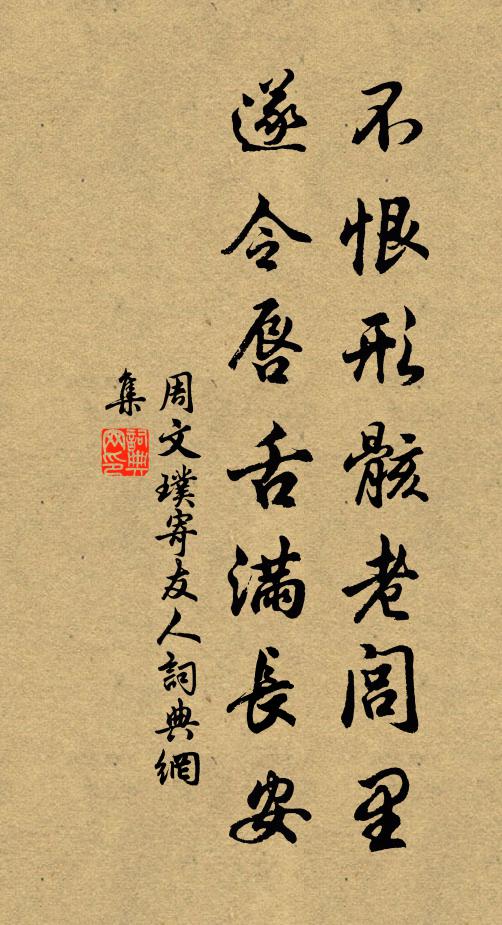 不恨形骸老閭里
遂令唇舌滿長安
周文璞寄友人詞典網
集
詞典網印